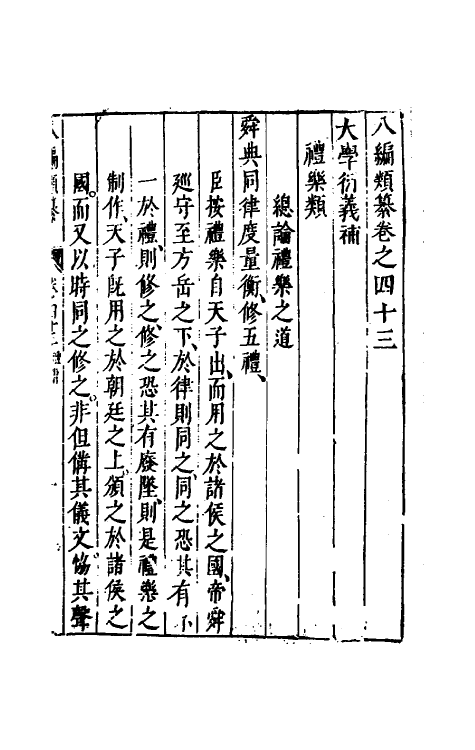 八編類纂卷之四十三
大學衍義補
禮樂類
總論禮樂之道
舜典同律度量衡、修五禮、
臣按禮樂自天子出、而用之於諸侯之國、帝舜
廵守至方岳之下、於律則同之、同之恐其有
一於禮、則修之、修之恐其有廢墜、則是禮樂之
制作、天子旣用之於朝廷之上、頒之於諸侯之
國。而又以時同之修之。非但備其儀文。恊其聲
編類纂